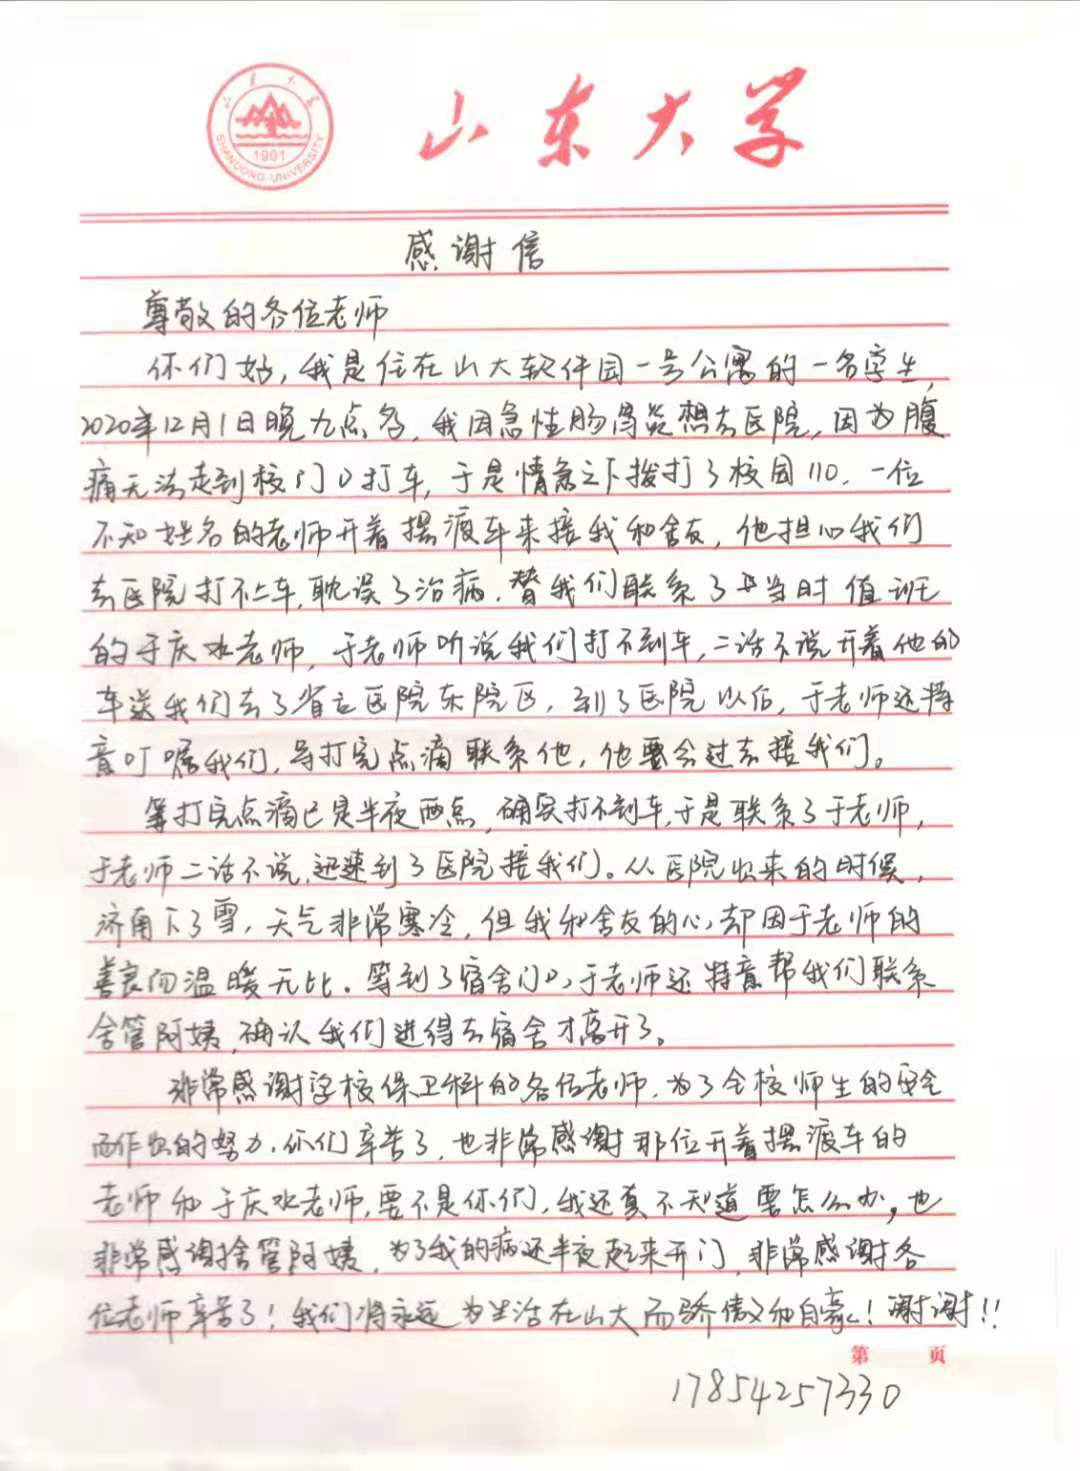 山东大学
SHANDONG UNIVERSITY
1901
山东大学
感谢信
尊敬的各位老师
你们好,我是住在山大软件园一号公寓的一名学生,
2020年12月1日晚九点多,我因急性肠胃炎想去医院,因为腹
痛无法走到校门口打车,于是情急之下拨打了校园110.一位
不知姓名的老师开着摆渡车来接我和舍友,他担心我们
去医院打不上车,耽误了治病.替我们联系了当时值班
的于庆水老师,于老师听说我们打不到车,二话不说开着他的
车送我们去了省立医院东院区,到了医院以后,于老师还特
意叮嘱我们,等打完点滴联系他,他要会过去接我们。
等打完点滴已是半夜两点,确实打不到车,于是联系了于老师,
于老师二话不说,迅速到了医院接我们。从医院出来的时候,
济南下了雪,天气非常寒冷,但我和舍友的心却因于老师的
善良而温暖无比.等到了宿舍门口,于老师还特意帮我们联系
舍管阿姨,确认我们进得去宿舍才离开了。
非常感谢学校保卫科的各位老师.为了全校师生的安全
而作出的努力.你们辛苦了,也非常感谢那位开着摆渡车的
老师和于庆水老师,要不是你们,我还真不知道要怎么办,也
非常感谢舍管阿姨,为了我的病还半夜起来开门,非常感谢各
位老师辛苦了!我们将永远为生活在山大而骄傲和自豪!谢谢!!
第 页
17854257330